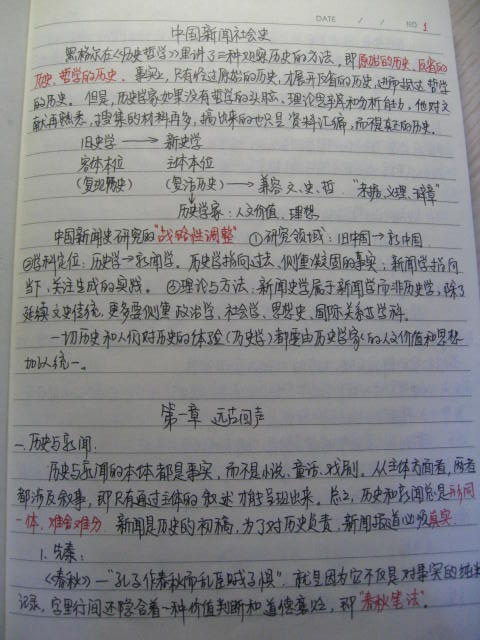 DATE / / NO 1
中国新闻社会史
黑格尔在《历史哲学》里讲了三种观察历史的方法,即原始的历史,反省的
历史,哲学的历史。事实上,只有经过原始的历史,才展开反省的历史,进而抵达哲学
的历史。但是,历史学家如果没有哲学的头脑、理论思维和分析能力,他对文
献再熟悉,搜集的材料再多,搞出来的也只是资料汇编,而不是真正的历史。
旧史学 → 新史学
客体本位 主体本位
(复现历史) (复活历史) → 兼容文、史、哲 "考据、义理、辞章"
历史学家:人文价值、理想
中国新闻史研究的"战略性调整" ①研究领域:旧中国→新中国
②学科定位:历史学→新闻学。历史学指向过去、侧重凝固的事实;新闻学指向
当下,关注生成的实践。③理论与方法,新闻史学属于新闻学而非历史学,除了
延续文史传统,更多要侧重政治学、社会学、思想史、国际关系等学科。
一切历史和人们对历史的体验(历史学)都要由历史学家的人文价值和思想
加以统一。
第一章 远古回声
一.历史与新闻.
历史与新闻的本体都是事实,而不是小说、童话、戏剧。从主体方面看,两者
都涉及叙事,即只有通过主体的叙述才能呈现出来。总之,历史和新闻总是形同
一体,难舍难分。新闻是历史的初稿,为了对历史负责,新闻报道必须真实.
1.先秦:
《春秋》—"孔子作春秋而乱臣贼子惧"。就是因为它不仅是对事实的纯粹
记录,字里行间还隐含着一种价值判断和道德褒贬,即"春秋笔法"。